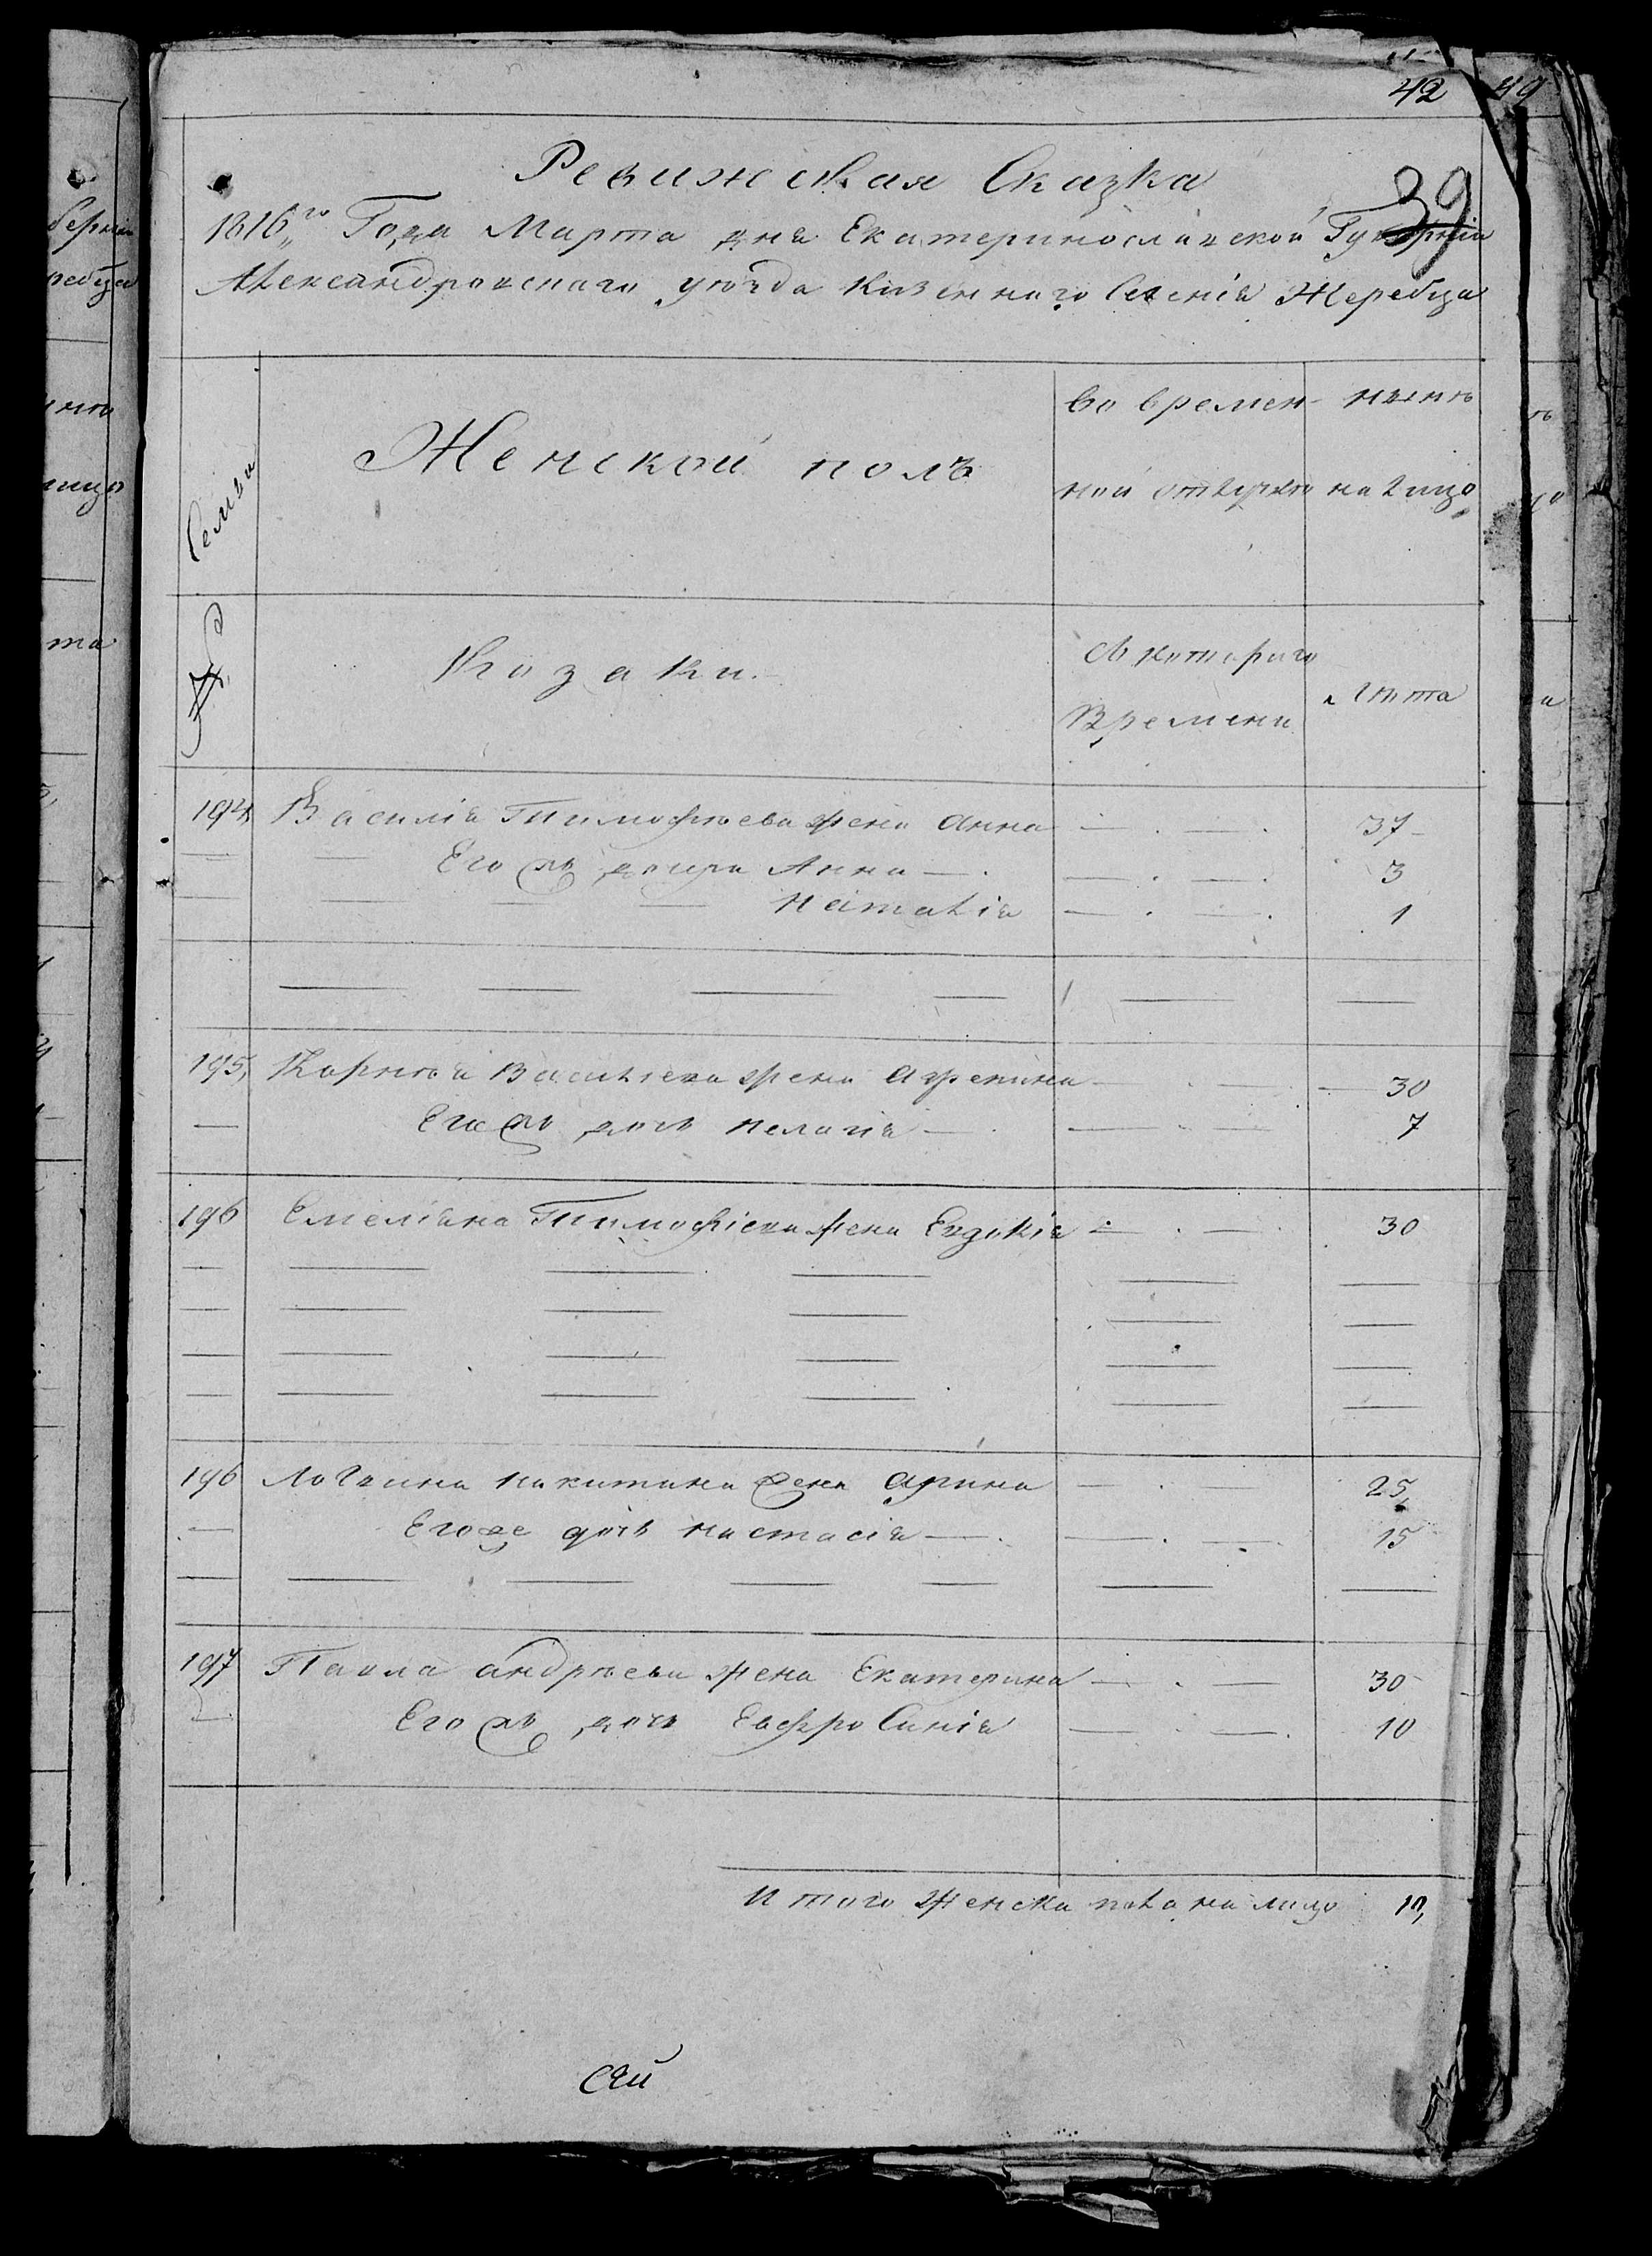 42
39
Ревижская Сказка
1816го Года Марта дня Екатеринославской Губерніи
Александровскаго уѣзда Казеннаго Селенія Жеребца
Семьи
№
Женской полъ
Во времен-
ной отлучкѣ
нынѣ
на лицо
Козаки.
Съ котораго
Времени
лѣта
194, Василія Тимофѣева жена Анна — . — . 37
— — Его жъ дочери Анна — . — . — . 3
— — — — Наталія — . — . 1
195, Корнѣя Васильева жена Агрепина — . — 30
— Его жъ дочь Пелагія — . — . — 7
196 Емеліяна Тимофіева жена Евдокія — . — . 30
196 Логвина Никитина жена Арина — . — 25,
— Егоже дочь Настасія — . — . — . 15
197 Павла Андрѣева жена Екатерина — . — 30
— Его жъ дочь Евфросинія — . — . 10
Итого женска пола на лицо 10,